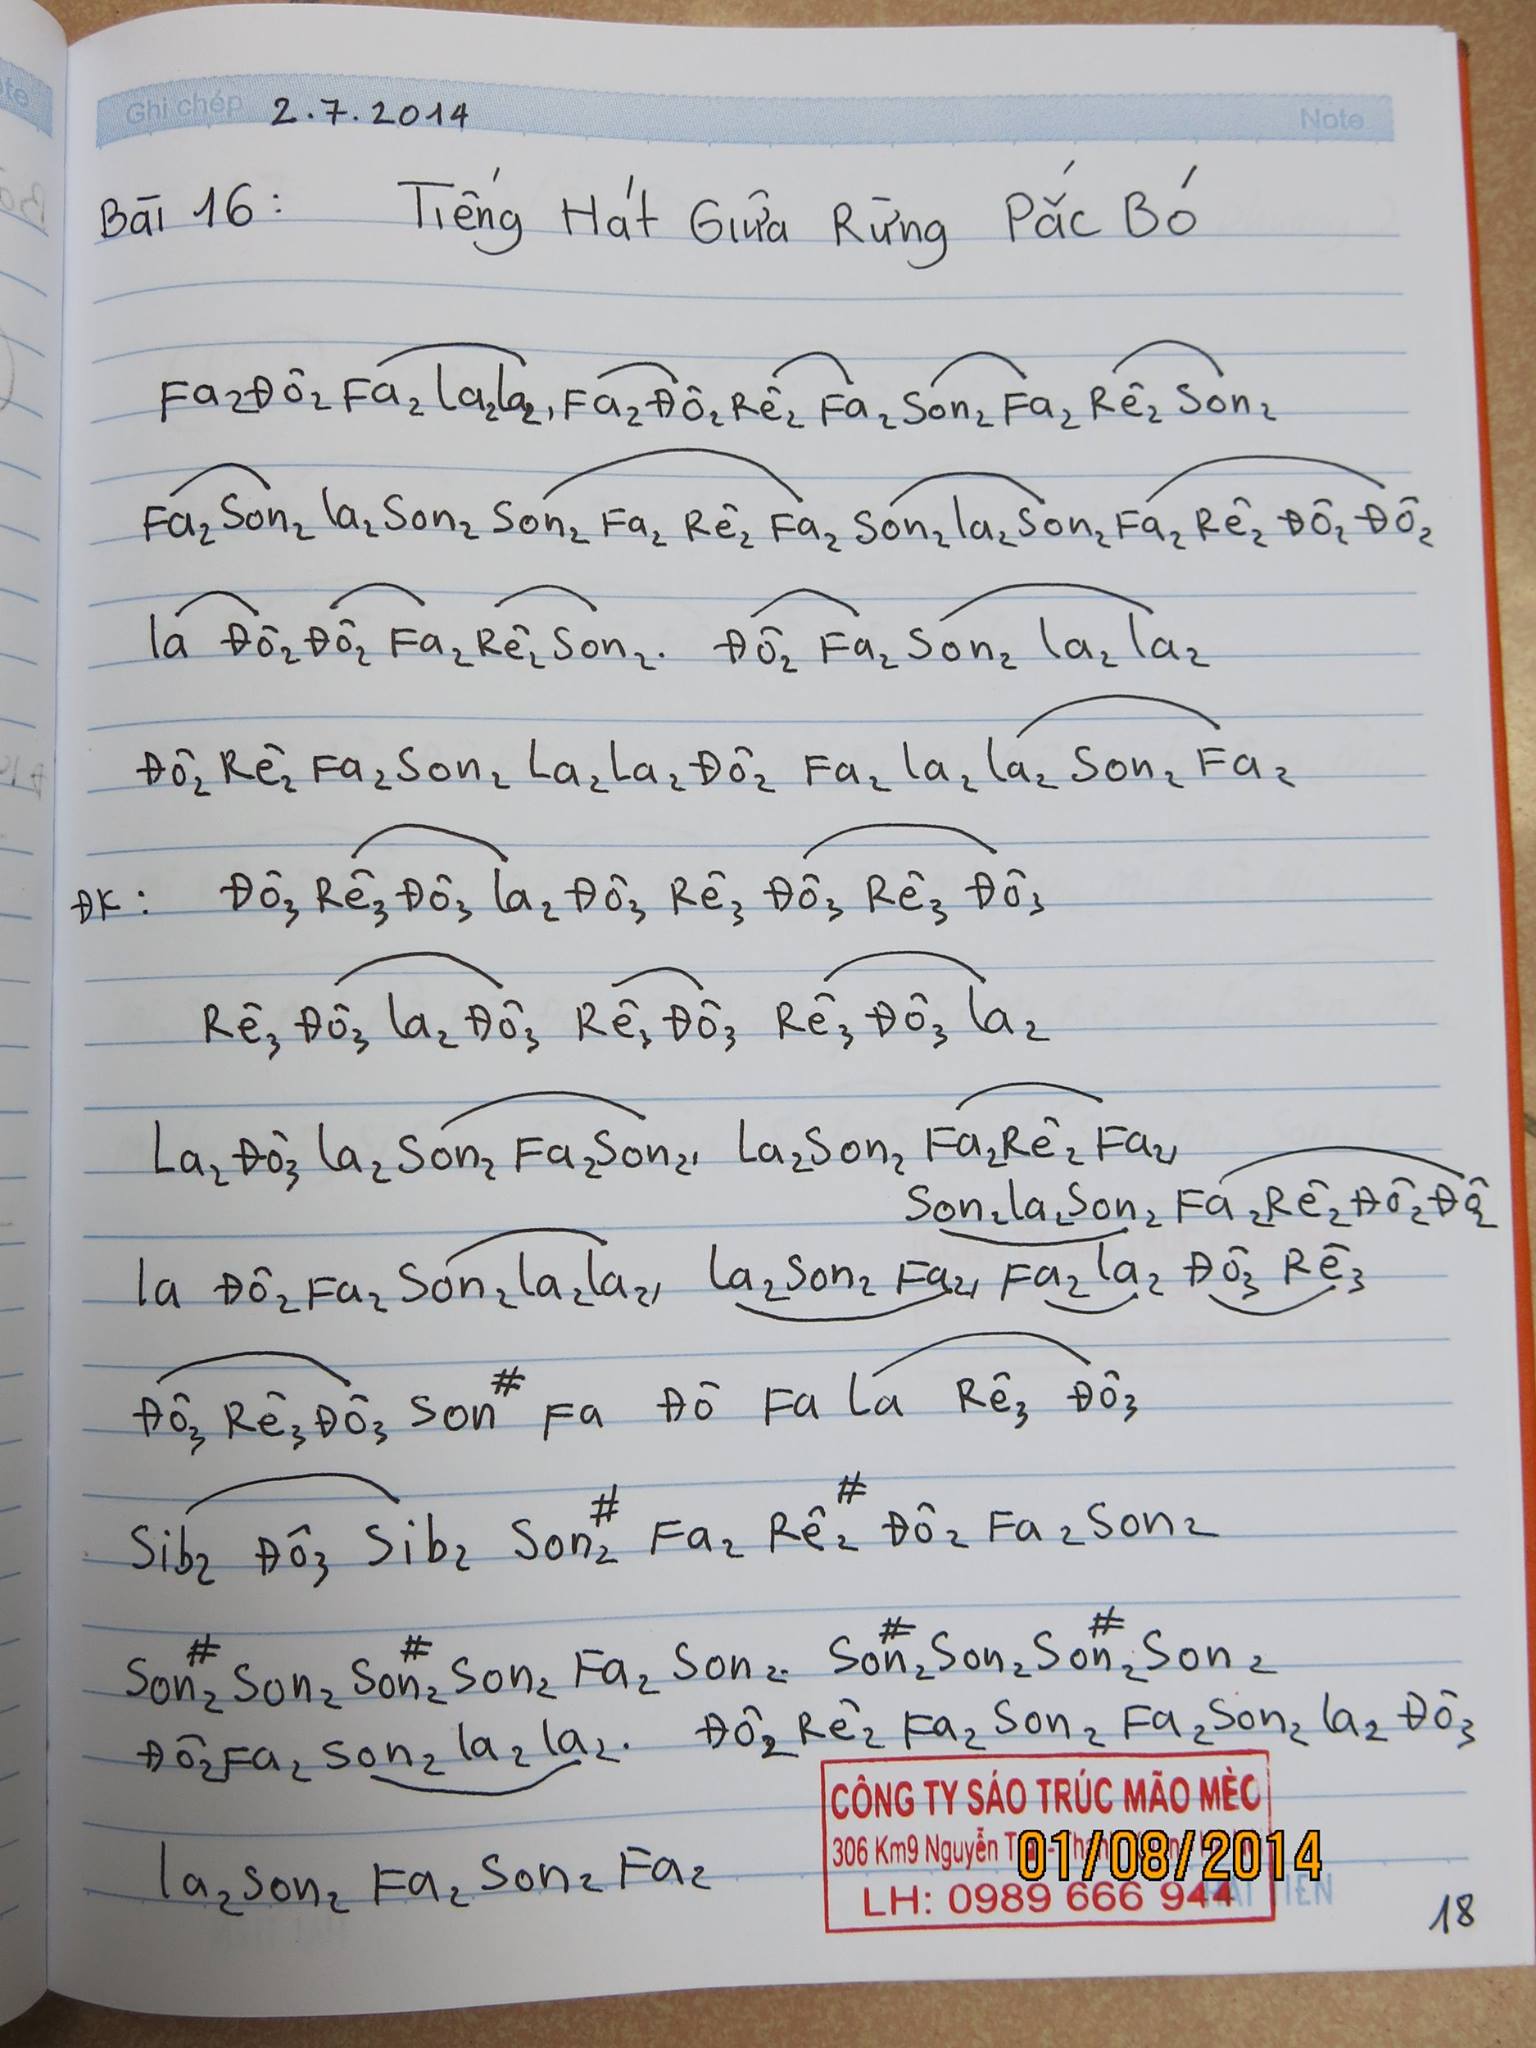 Ghi chép 2.7.2014 Note
Bài 16: Tiếng Hát Giữa Rừng Pắc Bó
Fa2 Đô2 Fa2 la2 la2, Fa2 Đô2 Rê2 Fa2 Son2 Fa2 Rê2 Son2
Fa2 Son2 la2 Son2 Son2 Fa2 Rê2 Fa2 Son2 la2 Son2 Fa2 Rê2 Đô2 Đô2
la Đô2 Đô2 Fa2 Rê2 Son2. Đô2 Fa2 Son2 la2 la2
Đô2 Rê2 Fa2 Son2 La2 La2 Đô2 Fa2 la2 la2 Son2 Fa2
ĐK: Đô3 Rê3 Đô3 la2 Đô3 Rê3 Đô3 Rê3 Đô3
Rê3 Đô3 la2 Đô3 Rê3 Đô3 Rê3 Đô3 la2
La2 Đô3 la2 Son2 Fa2 Son2, La2 Son2 Fa2 Rê2 Fa2,
Son2 la2 Son2 Fa2 Rê2 Đô2 Đô2
la Đô2 Fa2 Son2 la2 la2, la2 Son2 Fa2, Fa2 la2 Đô3 Rê3
Đô3 Rê3 Đô3 Son# Fa Đô Fa la Rê3 Đô3
Sib2 Đô3 Sib2 Son2# Fa2 Rê2# Đô2 Fa2 Son2
Son2# Son2 Son2# Son2 Fa2 Son2. Son2# Son2 Son2# Son2
Đô2 Fa2 Son2 la2 la2. Đô2 Rê2 Fa2 Son2 Fa2 Son2 la2 Đô3
la2 Son2 Fa2 Son2 Fa2
CÔNG TY SÁO TRÚC MÃO MÈO
306 Km9 Nguyễn
01/08/2014
LH: 0989 666 944
18